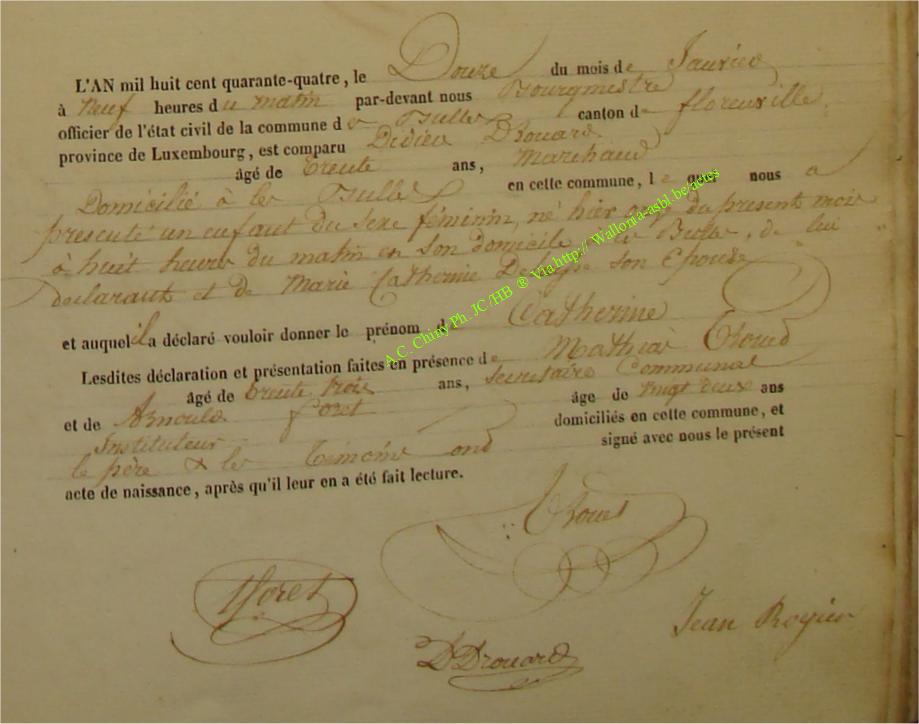 L'AN mil huit cent quarante-quatre, le Douze du mois de Janvier
à neuf heures du matin par-devant nous Bourgmestre
officier de l'état civil de la commune de Bulles canton de florenville
province de Luxembourg, est comparu Didier Drouard
âgé de trente ans, Marchand
Domicilié à les Bulles en cette commune, le quel nous a
presenté un enfant du sexe féminin, né hier onze du présent mois
à huit heures du matin en son domicile, à les Bulles, de lui
declarant et de Marie Catherine son Epouse
et auquel il a déclaré vouloir donner le prénom de Catherine
Lesdites déclaration et présentation faites en présence de Mathias
âgé de trente trois ans, secretaire Communal
et de Arnould foret âge de vingt deux ans
Instituteur domiciliés en cette commune, et
le père & les témoins ont signé avec nous le présent
acte de naissance, après qu'il leur en a été fait lecture.
A.C. Chiny Ph. JC/HB ® Via http://Wallonia-asbl.be/actes
foret
D Drouard
Jean Rogier